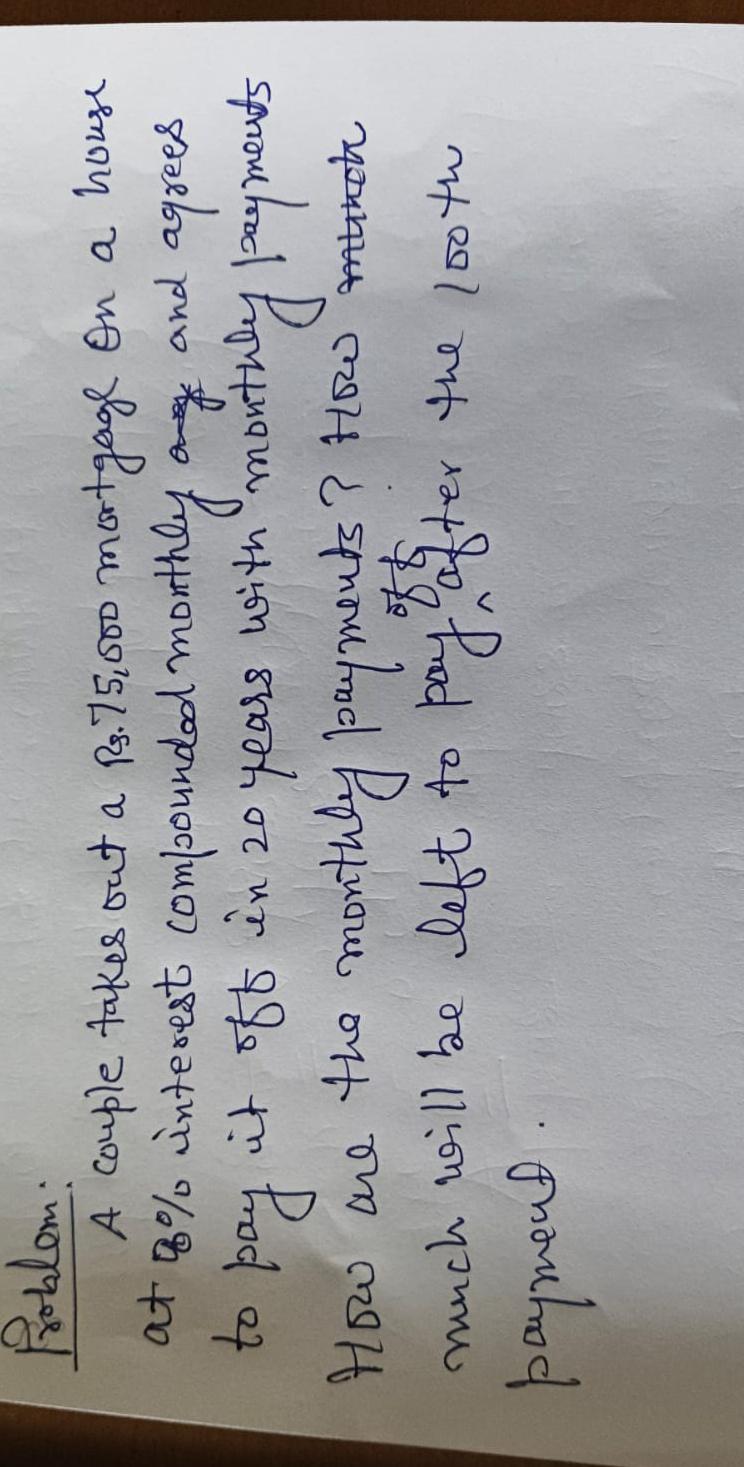 Problem:
A couple takes out a Rs. 75,000 mortgage on a house
at 8% interest compounded monthly and agrees
to pay it off in 20 years with monthly payments
How are the monthly payments? How
much will be left to pay off after the 100th
payment.